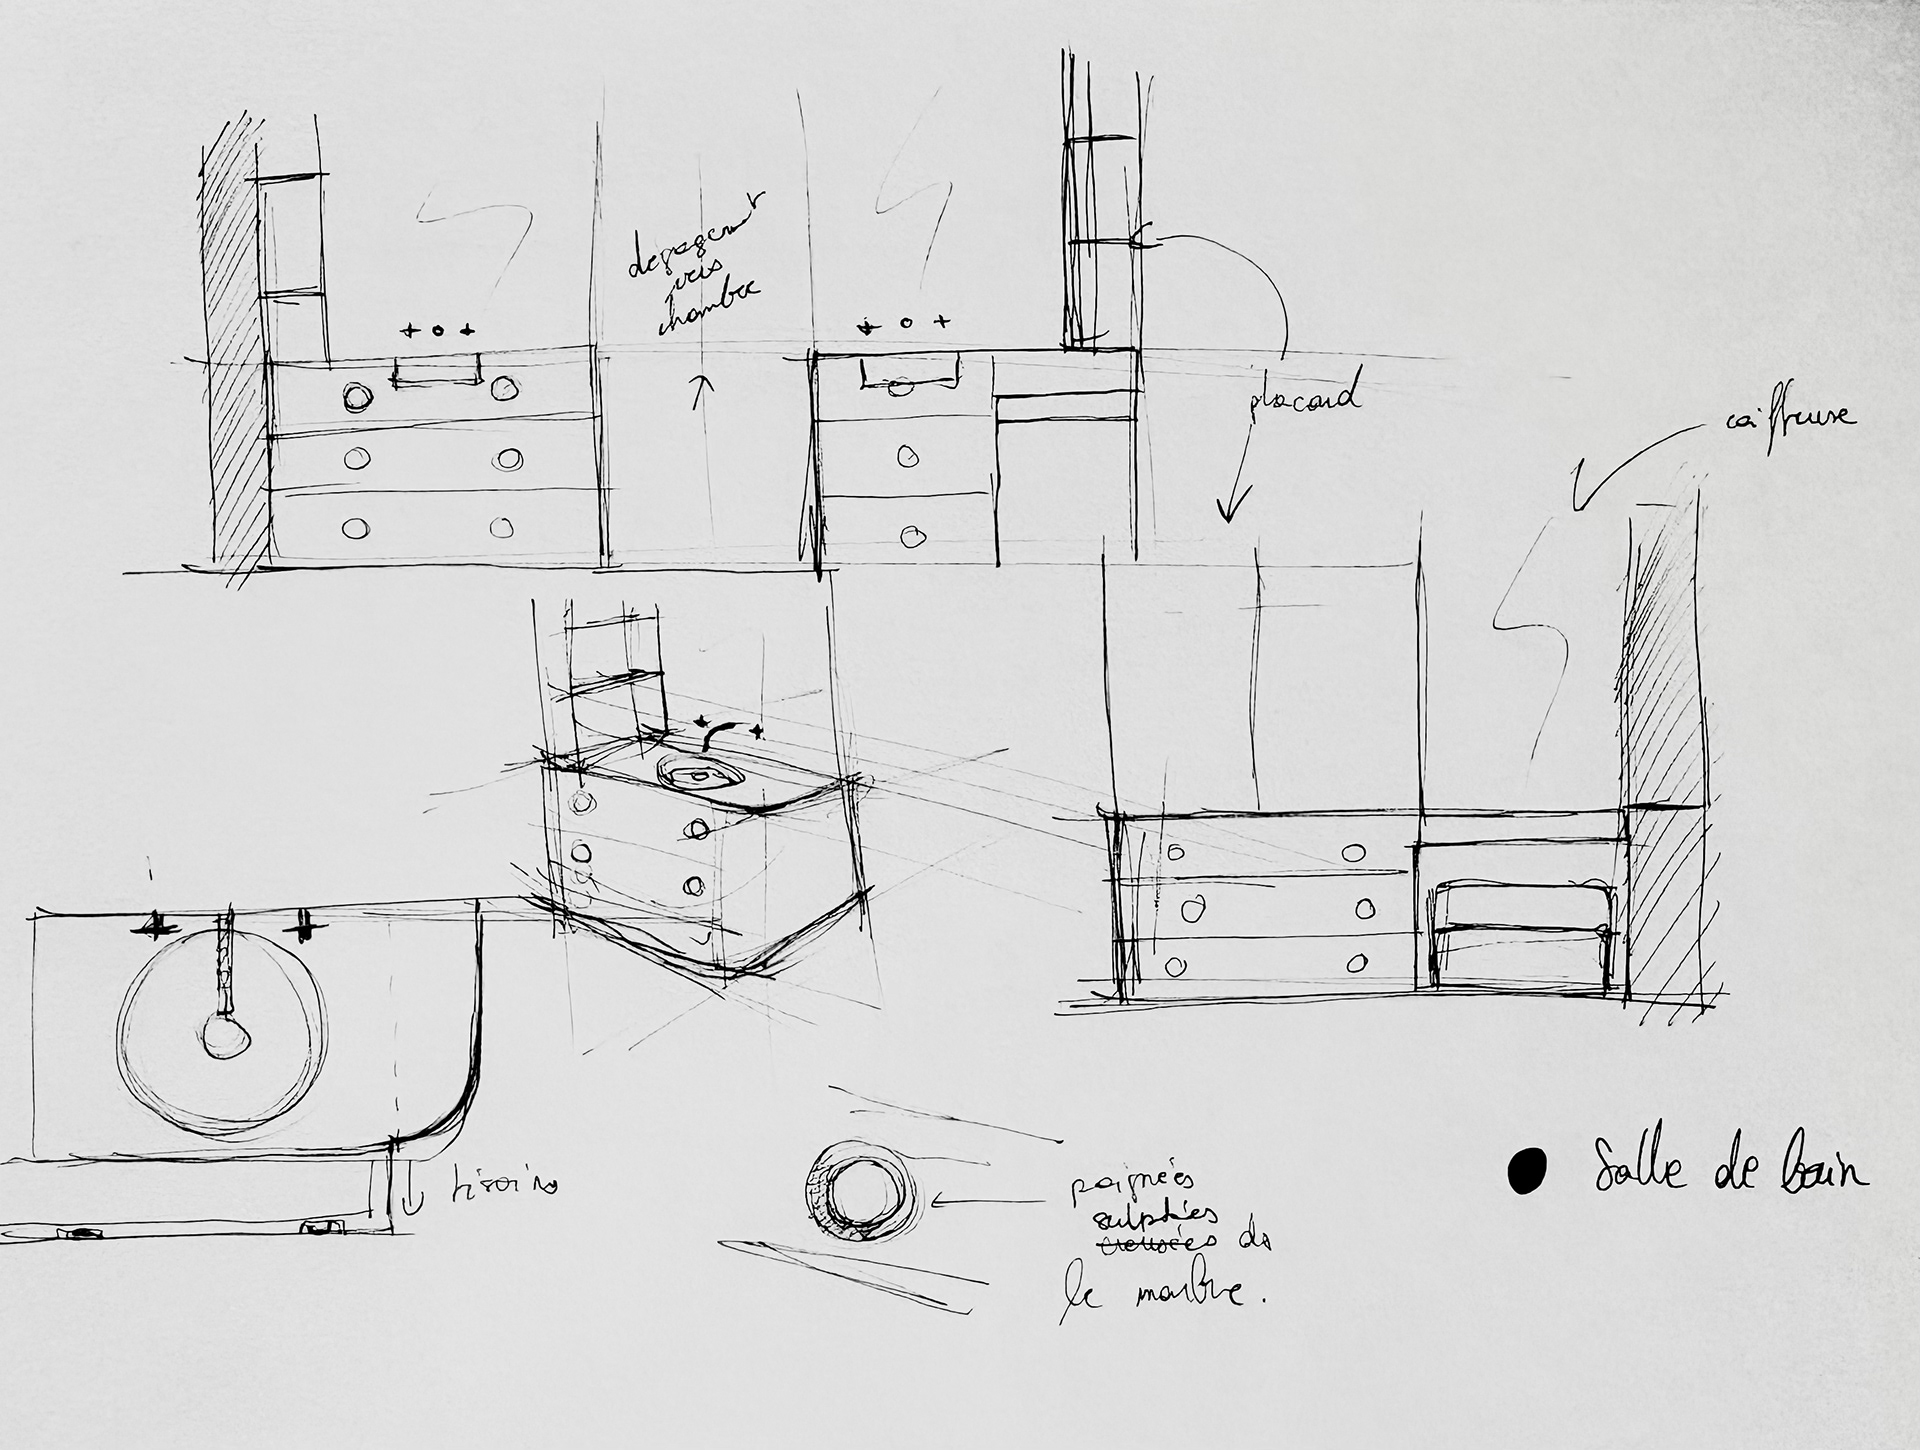 degagement
vers
chambre
placard
coiffeuse
tiroirs
poignées
sculptées
creusées ds
le marbre.
Salle de bain